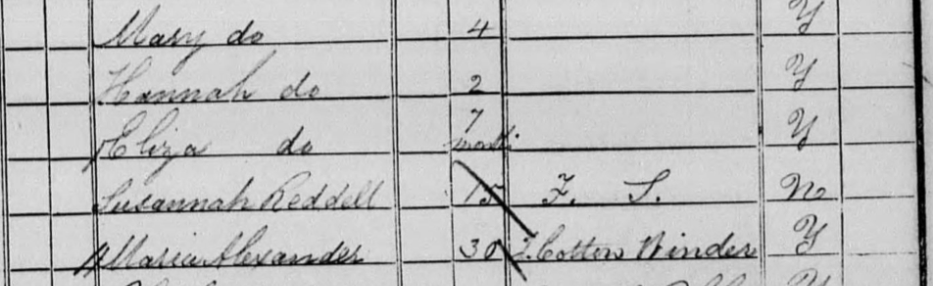 Mary do 4 Y
Hannah do 2 Y
Eliza do 7 months Y
Susannah Reddell 15 F. S. N
Maria Alexander 30 F. Cotton Winder Y